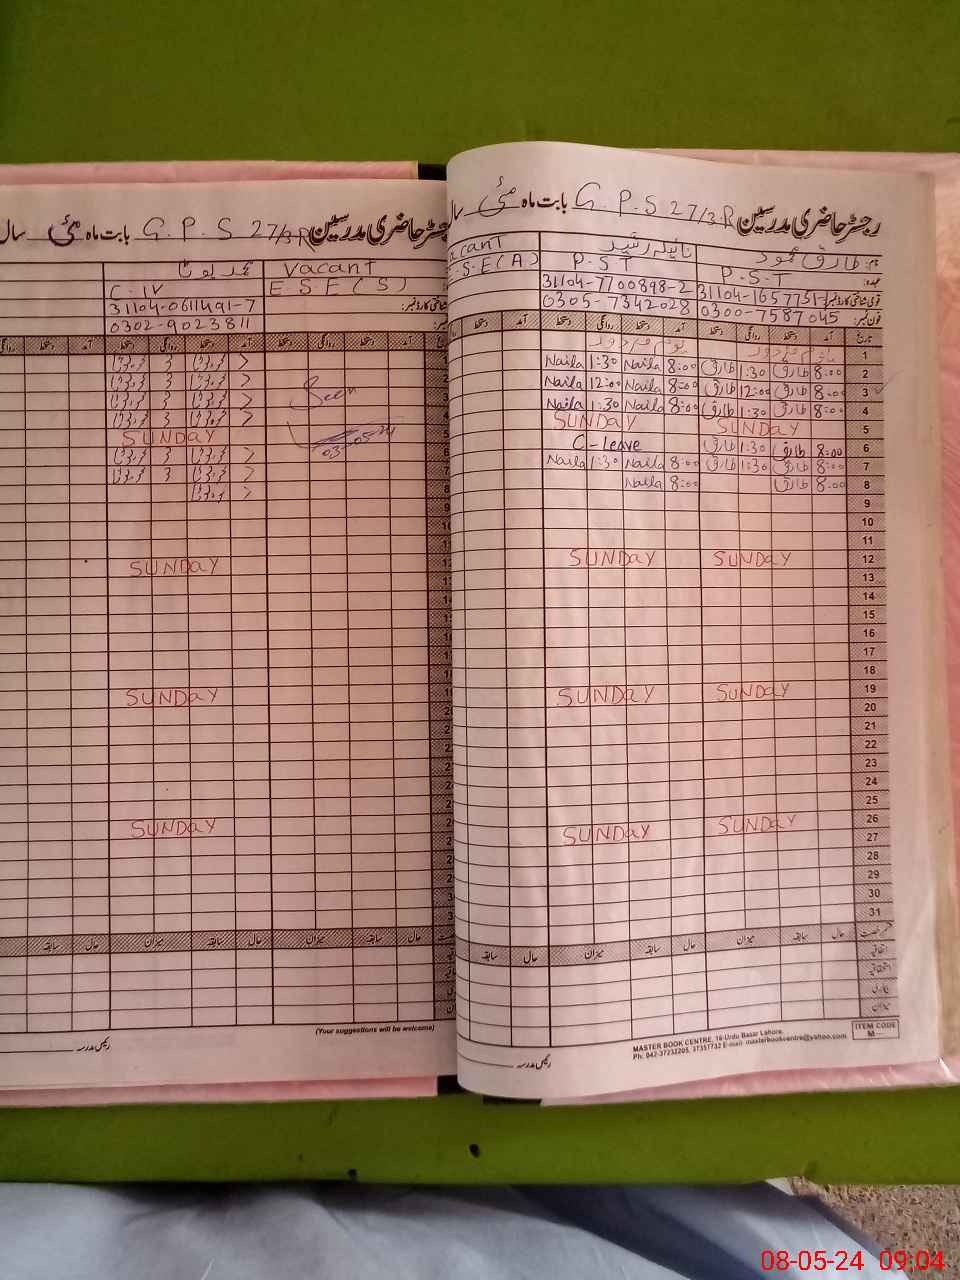 رجسٹر حاضری مدرسین G.P.S 27/3R بابت ماہ مئی سال
Vacant
محمد بوٹا
E.S.E(S)
C-IV
31104-0611491-7
0302-9023811
روانگی دستخط آمد دستخط روانگی دستخط آمد
Seen
03-05-24
SUNDAY
SUNDAY
SUNDAY
SUNDAY
سابقہ حال میزان سابقہ حال میزان سابقہ حال
(Your suggestions will be welcome)
رئیس مدرسہ
رجسٹر حاضری مدرسین G.P.S 27/3R بابت ماہ مئی سال
نام: طارق محمود نائیلہ رشید acant
عہدہ: P.S.T P.S.T S.E(A)
قومی شناختی کارڈ نمبر: 31104-1657751-1 31104-7700898-2
فون نمبر: 0300-7587045 0305-7342028
تاریخ آمد دستخط روانگی دستخط آمد دستخط روانگی دستخط آمد
1 یوم مزدور یوم مزدور
2 8:00 طارق 1:30 طارق 8:00 Naila 1:30 Naila
3 8:00 طارق 12:00 طارق 8:00 Naila 12:00 Naila
4 8:00 طارق 1:30 طارق 8:00 Naila 1:30 Naila
5 SUNDAY SUNDAY
6 8:00 طارق 1:30 طارق C-Leave
7 8:00 طارق 1:30 طارق 8:00 Naila 1:30 Naila
8 8:00 طارق 8:00 Naila
9
10
11
12 SUNDAY SUNDAY
13
14
15
16
17
18
19 SUNDAY SUNDAY
20
21
22
23
24
25
26 SUNDAY SUNDAY
27
28
29
30
31
قسم رخصت حال سابقہ میزان حال سابقہ میزان حال سابقہ
اتفاقیہ
استحقاقیہ
بیماری
میزان
ITEM CODE
M—
MASTER BOOK CENTRE, 16-Urdu Bazar Lahore.
Ph: 042-37232205, 37357732 E-mail: masterbookcentre@yahoo.com
رئیس مدرسہ
08-05-24 09:04